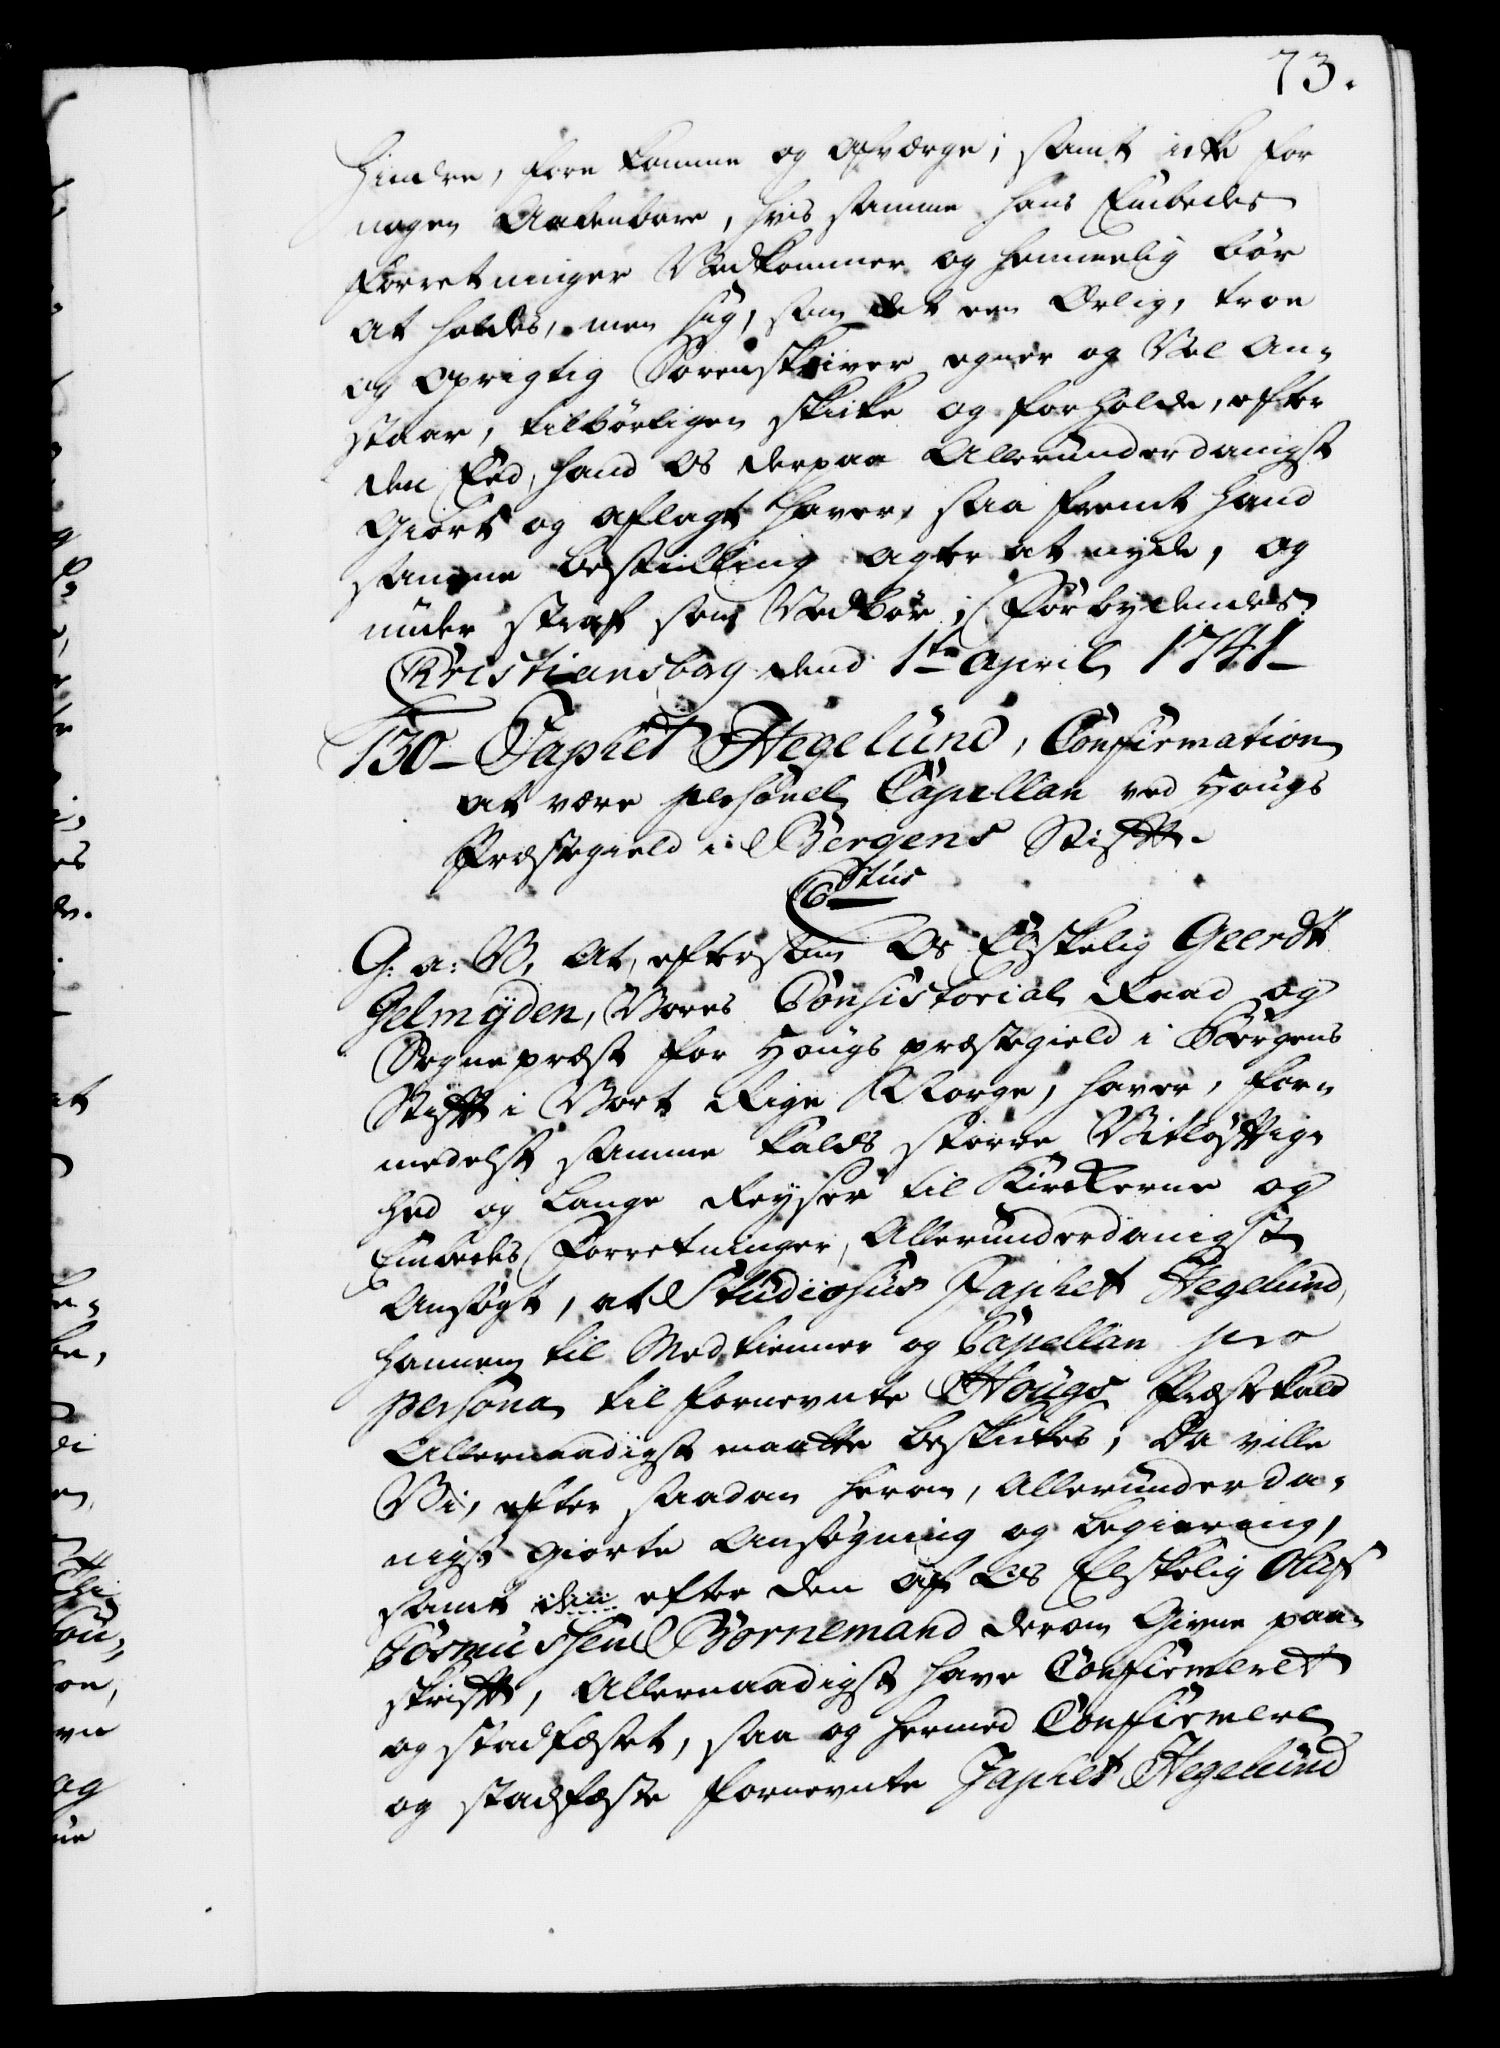 73.
hindre, fore komme og afværge; samt icke for
nogen Aabenbare, hvis samme hans Embedes
Forretninger Vedkommer og hemmelig bør
at holdes, men sig, som det een Ærlig, troe
og Oprigtig Sorenskriver egner og Vel an-
staar, tilbørligen skicke og forholde, efter
den Eed, hand Os derpaa Allerunderdanigst
Giort og aflagt haver, saa fremt hand
samme bestilling agter at nyde, og
under straf som Vedbør; Forbydendes
Christiansborg dend 1te April 1741
130 Japhet Hegelund, Confirmation
at være personel Capellan ved Hougs
Præstegield i Bergens Stifft.
G: a: V. At, eftersom Os Elskelig Geerdt
Gelmÿden, Vores Consistorial Raad og
Sognepræst for Hougs præstegield i Bergens
Stifft i Vort Rige Norge, haver, for-
medelst samme Kalds store Vitløfftig-
hed og lange Reyser til Kirckerne og
Embeds Forretninger, Allerunderdanigst
Ansøgt, at Studiosus Japhet Hegelund,
hannem til Medtienner og Capellan pro
persona til fornevnte Hougs Præstekald
Allernaadigst maatte beskickes, Da ville
Vi, efter saadan herom, Allerunderda-
nigst giorte Ansøgning og begiering,
samt efter den af Os Elskelig Oluf
Cosmussen Bornemand derom Givne paa-
skrifft, Allernaadigst have Confirmeret
og stadfæstet, saa og hermed Confirmere
og stadfæste fornevnte Japhet Hegelund